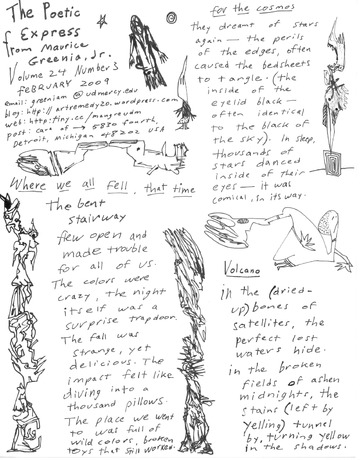 The Poetic
Express
from Maurice
Greenia, Jr.
Volume 24 Number 3
FEBRUARY 2009
email: greeniam @ udmercy.edu
blog: http://artremedy20.wordpress.com
web: http:tiny.cc/mangreudm
post: care of → 5830 fourth,
Detroit, Michigan 48202 USA
Where we all fell, that time
The bent
stairway
flew open and
made trouble
for all of us.
The colors were
crazy, the night
itself was a
surprise trapdoor.
The fall was
strange, yet
delicious. The
impact felt like
diving into a
thousand pillows.
The place we went
to was full of
wild colors, broken
toys that still worked.
for the cosmos
they dreamt of stars
again — the perils
of the edges, often
caused the bedsheets
to tangle. (the
inside of the
eyelid black —
often identical
to the black of
the sky). In sleep,
thousands of
stars danced
inside of their
eyes — it was
comical, in its way.
Volcano
in the (dried-
up) bones of
satellites, the
perfect lost
waters hide.
in the broken
fields of ashen
midnights, the
stains (left by
yelling) tunnel
by, turning yellow
in the shadows.